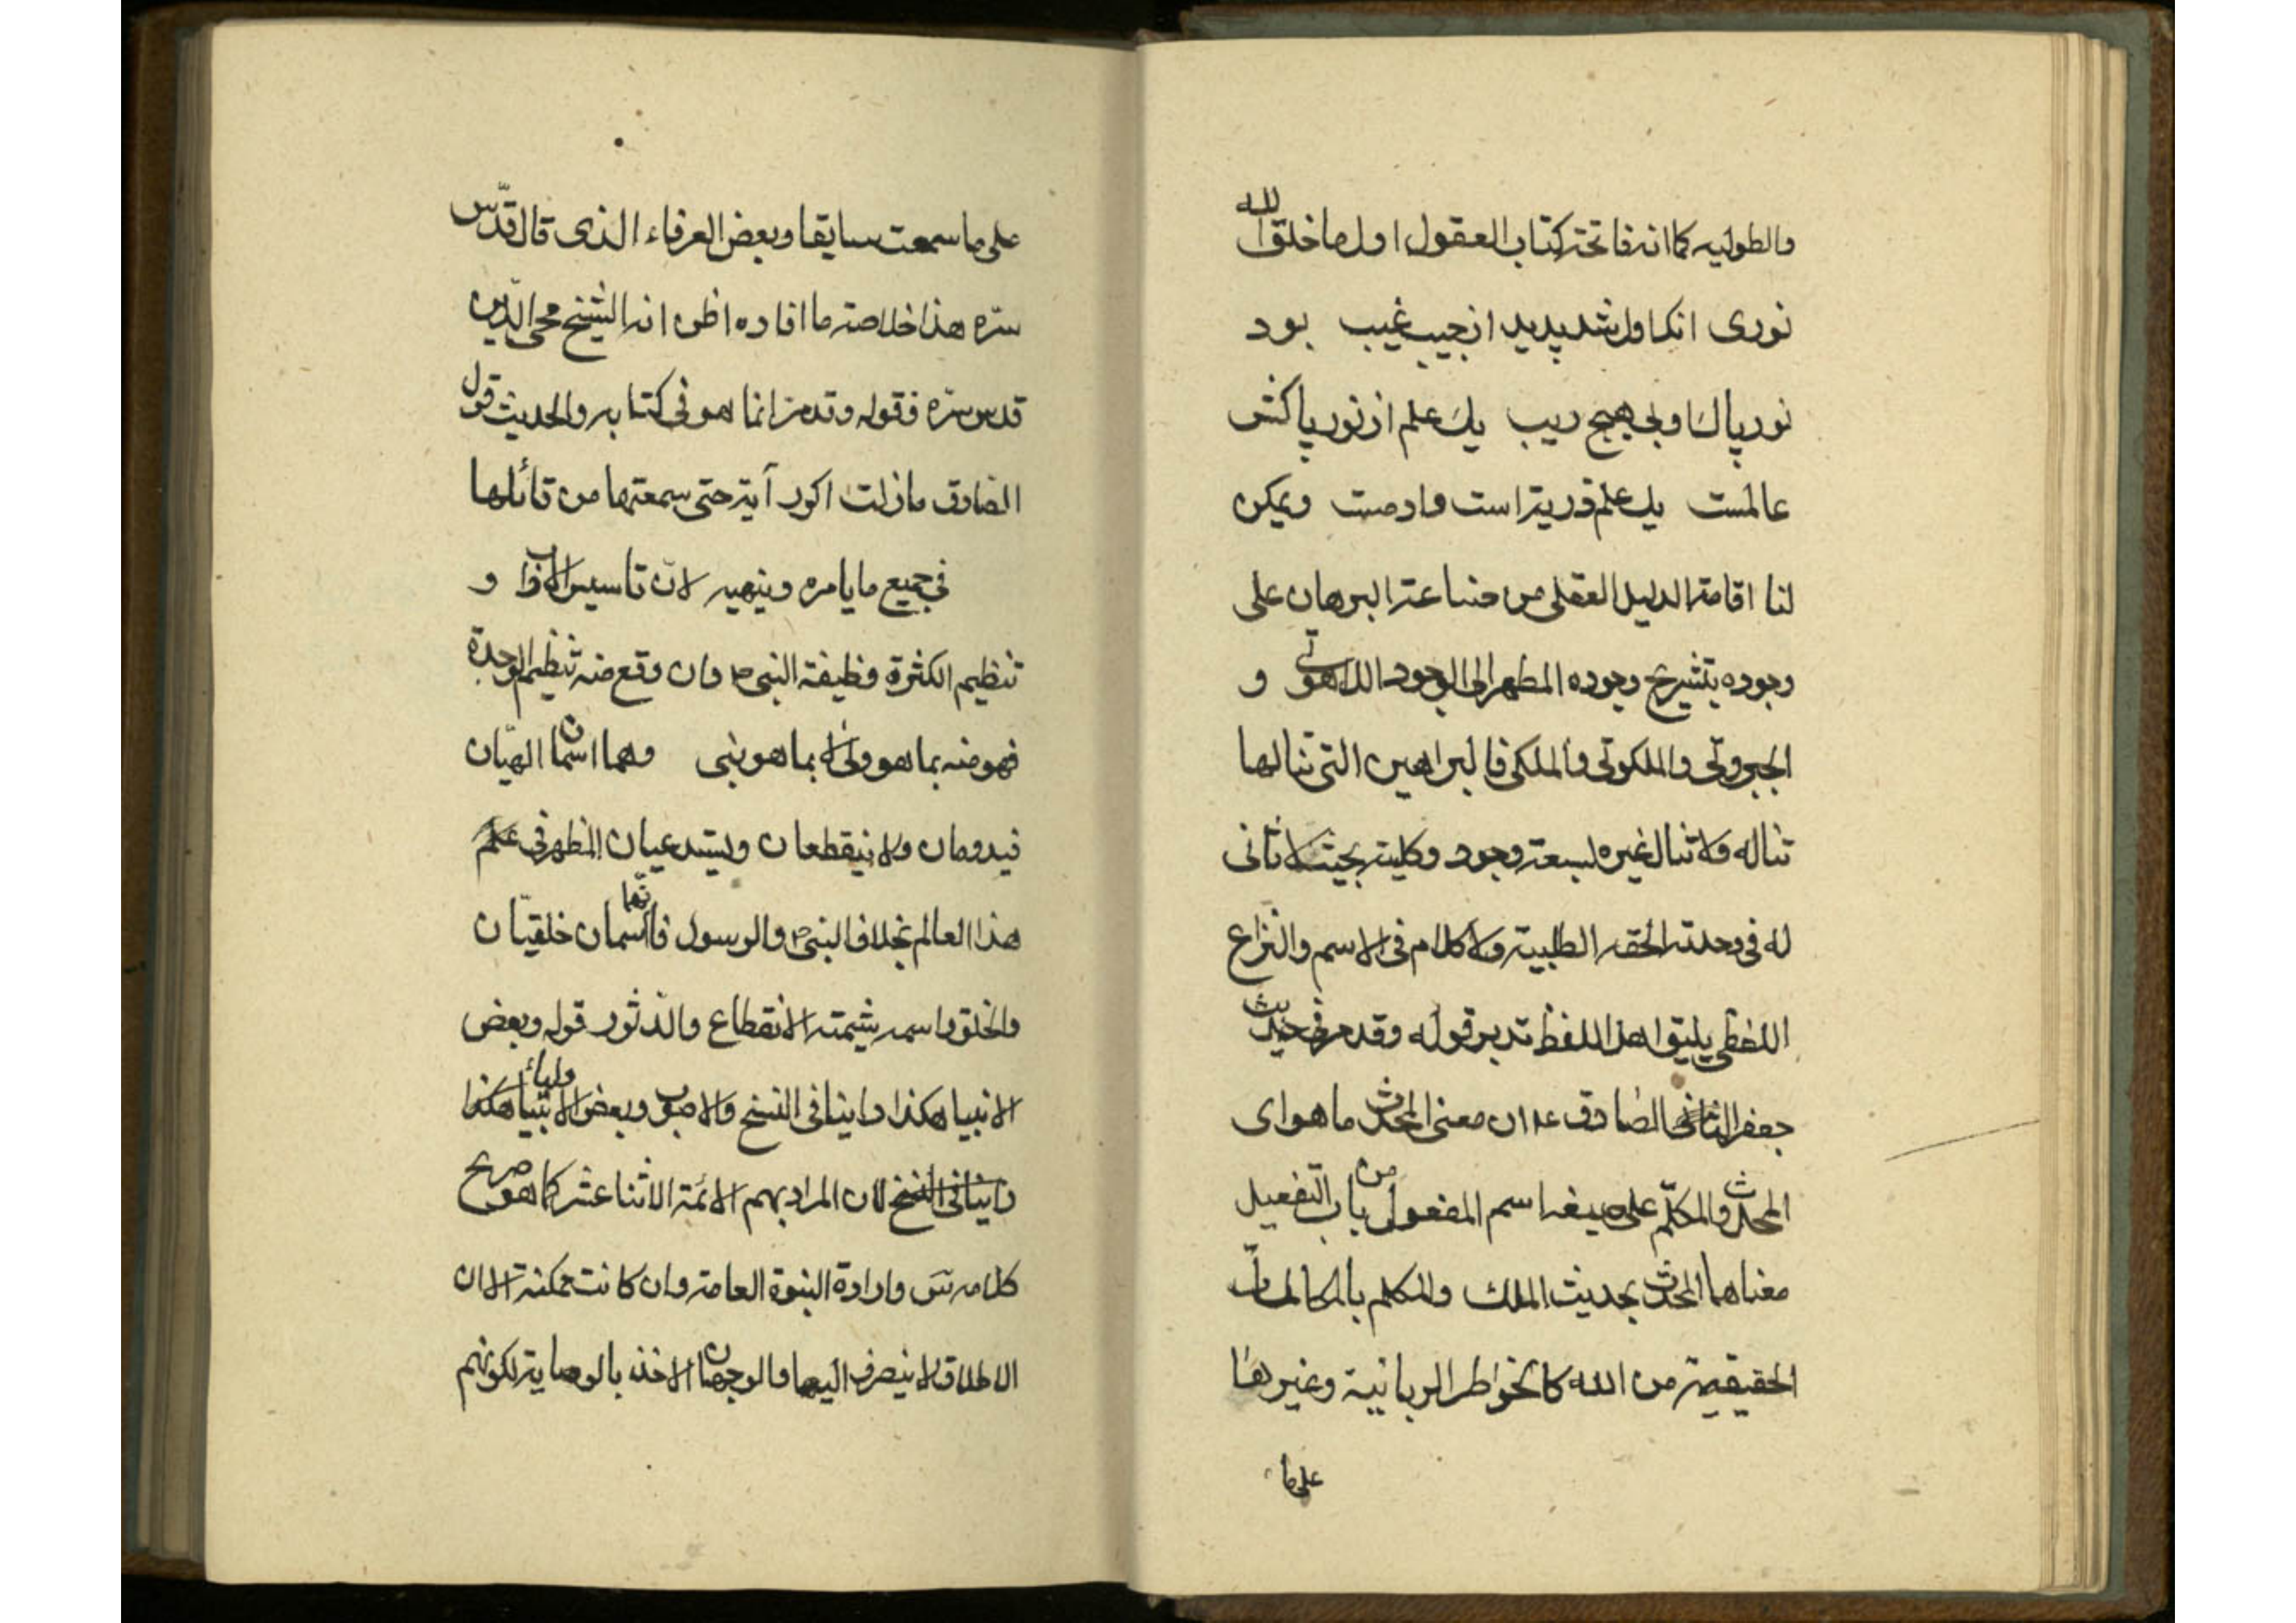 والطولیه کما انه فاتحة کتاب العقول اول ما خلق الله
نوری انکه اول شد پدید از جیب غیب بود
نور پاک او بی هیچ ریب یک علم از نور پاکش
عالمست یک علم ذریتر است وادمست ویمکن
لنا اقامة الدلیل العقلی من صناعة البرهان علی
وجوده بتشریح وجوده المطهر الی الوجود اللاهوتی و
الجبروتی والملکوتی والملکی فالبراهین التی تنالها
تناله ولا تنال غیره لسعة وجود وکلیته بحیث لا ثانی
له فی وحدته الحقه الظلیة ولا کلام فی الاسم والنزاع
اللفظی یلیق اهل اللفظ تدبر قوله وقد مر فی حدیث
جعفر الصادق ع ان معنی المحدث ما هو ای
المحدث والمکلم علی صیغه اسم المفعول من باب التفعیل
معناهما المحدث بحدیث الملک والمکلم بالمکالمات
الحقیقیة من الله کالخواطر الربانیة وغیرها
علی ما
علی ما سمعت سابقا وبعض العرفاء الذی قال قدّس
سرّه هذا خلاصة ما افاده اظن انه الشیخ محی الدّین
قدس سرّه فقوله وقد مر انما هو فی کتابه والحدیث قول
الصادق ما زلت اکرر آیة حتی سمعتها من قائلها
فی جمیع ما یامره وینهیه لانّ تاسیس الاداب و
تنظیم الکثرة وظیفة النبی ص وان وقع منه تنظیم الوحدة
فهو منه بما هو ولی لا بما هو نبی وهما اسمان الهیّان
فیدومان ولا ینقطعان ویستدعیان المظهر فی علم
هذا العالم بخلاف النبی ص والرسول فانهما اسمان خلقیّان
والخلق راسمه شیمته الانقطاع والدثور قوله وبعض
الانبیا هکذا وبعض الاولیاء هکذا
لان المراد بهم الائمة الاثنا عشر کما هو صریح
کلامه س وارادة النبوة العامة وان کانت ممکنة الا ان
الاطلاق لا ینصرف الیها والوجهان الاخذ بالوصایة لکونهم